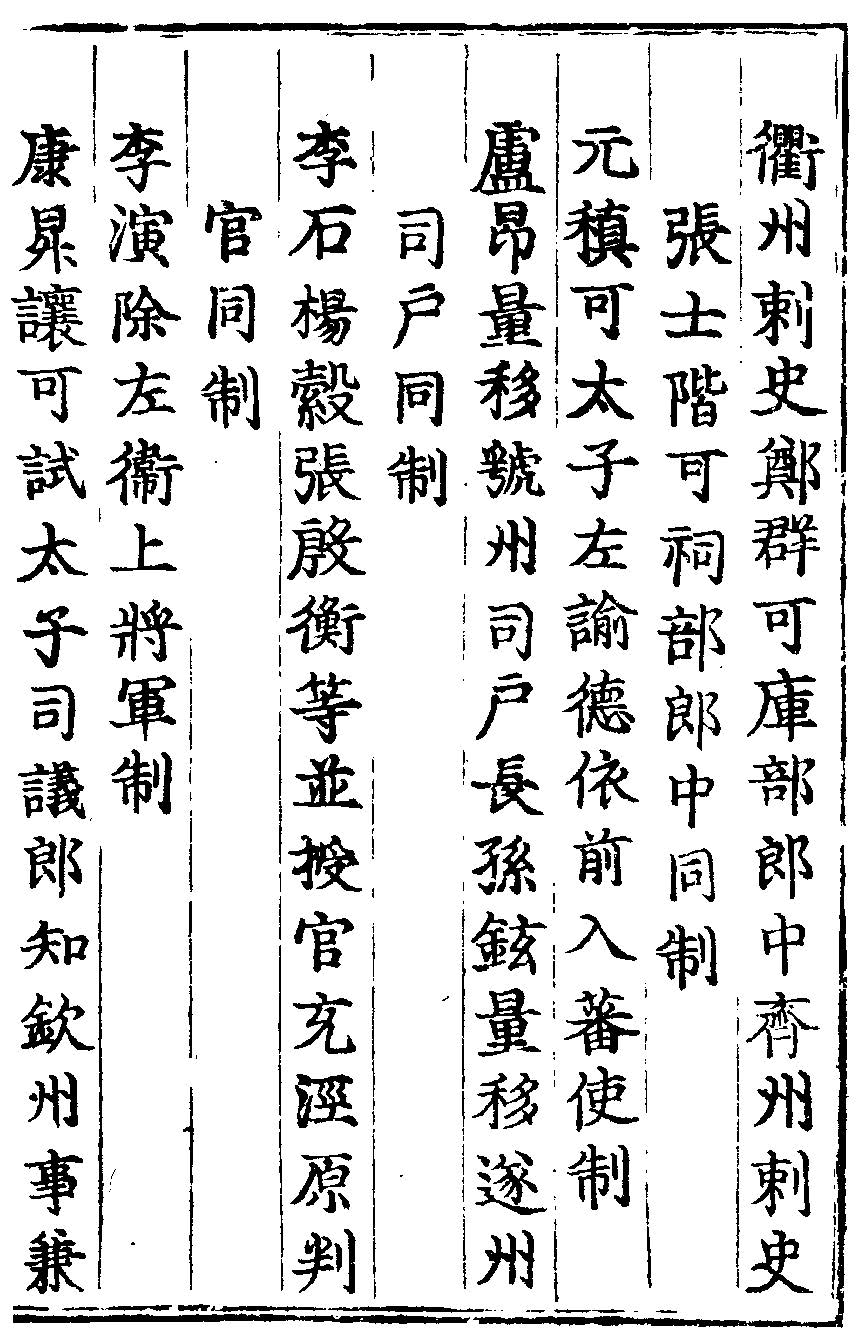 衢州刺史鄭群可庫部郎中齊州刺史
張士階可祠部郎中同制
元稹可太子左諭德依前入蕃使制
盧昂量移虢州司戶長孫鉉量移遂州
司戶同制
李石楊縠張殷衡等並授官充涇原判
官同制
李演除左衞上將軍制
康昇讓可試太子司議郎知欽州事兼